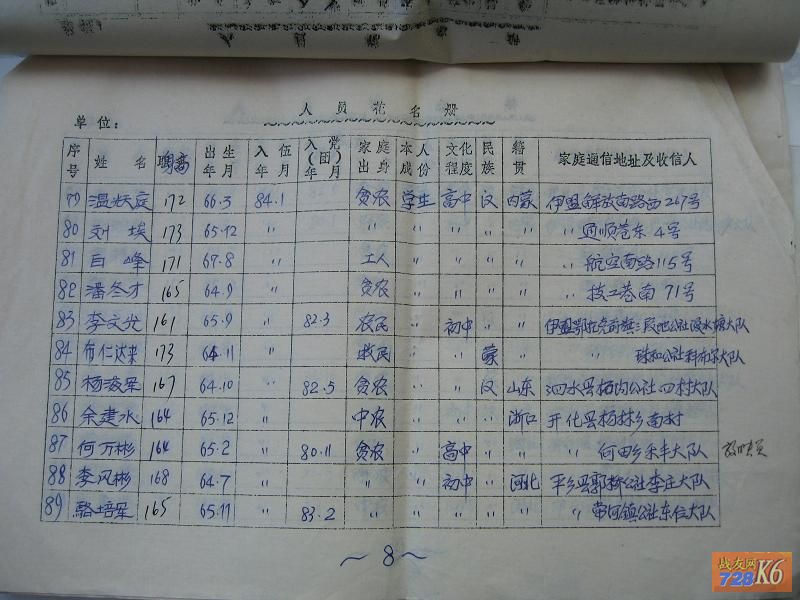 人员花名册
单位：
序号 姓名 职高 出生年月 入伍年月 入党(团)年月 家庭出身 本人成份 文化程度 民族 籍贯 家庭通信地址及收信人
79 温 172 66.3 84.1 贫农 学生 高中 汉 内蒙 伊盟解放南路西267号
80 刘埃 173 65.12 〃 〃 〃 〃 〃 〃 〃 通顺巷东4号
81 白峰 171 67.8 〃 工人 〃 〃 〃 〃 〃 航空南路115号
82 潘冬才 165 64.9 〃 贫农 〃 〃 〃 〃 〃 技工巷南71号
83 李文光 161 65.9 〃 82.3 农民 〃 初中 〃 〃 伊盟鄂托克前旗三段地公社大队
84 布仁达来 173 64.11 〃 牧民 〃 〃 蒙 〃 〃 珠和公社科布尔大队
85 杨海军 167 64.10 〃 82.5 贫农 〃 〃 汉 山东 泗水县杨柳公社四村大队
86 余建水 164 65.12 〃 中农 〃 〃 〃 浙江 开化县杨林乡南村
87 何万彬 164 65.2 〃 80.11 贫农 〃 高中 〃 〃 〃 何田乡禾丰大队
88 李风彬 168 64.7 〃 〃 〃 初中 〃 河北 平乡县郭桥公社李庄大队
89 骆培军 165 65.11 〃 83.2 〃 〃 〃 〃 〃 〃 河镇公社东位大队
～8～
战友网
728K6